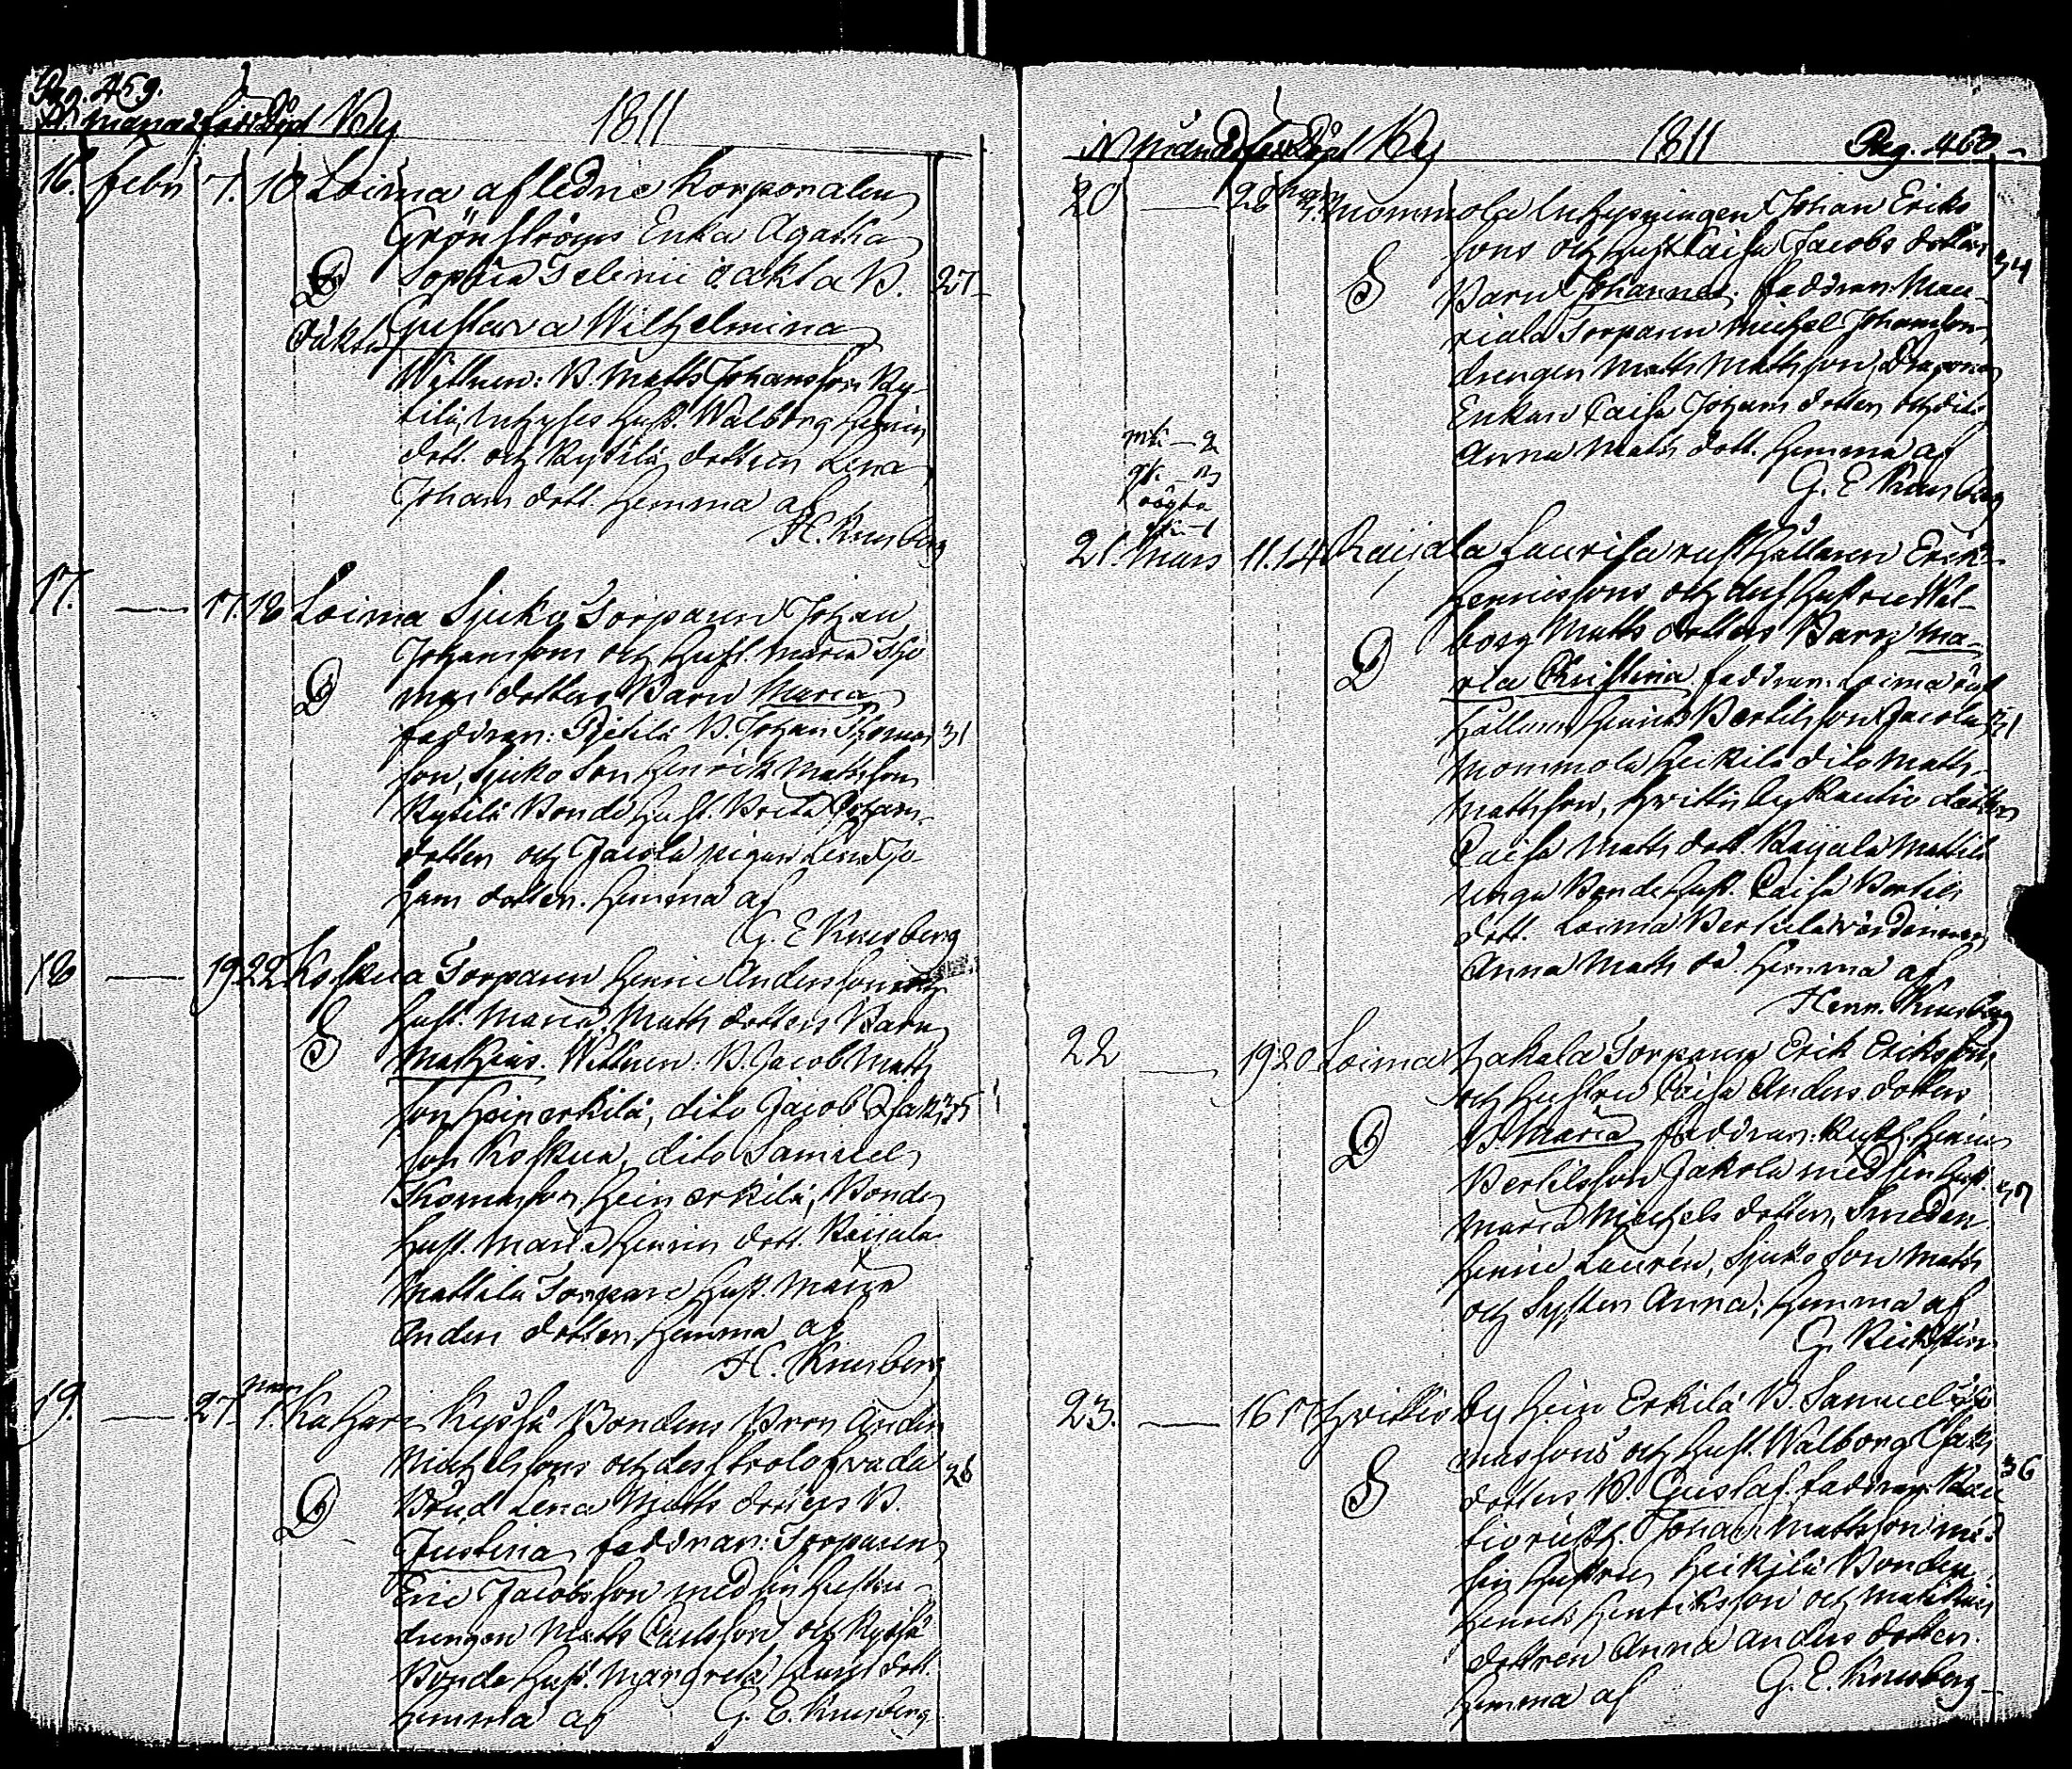 Pag. 459.
N. månad född Döpt By 1811
16. Febr 7. 10 Loima afledne Korporalen
Grönströms Enka Agatha
D Sophia Seleni oäkta B. 27
Oäkta Gustava Wilhelmina
Wittnen: B. Matts Johansson Ry-
tilä, Inhyses Hust. Walborg Henrics
dott. och Rytilä dottren Lena
Johans dott. hemma af
H. Knusberg
17. — 17. 18 Loima Sjuko Torparen Johan
Johanssons och Hust. Maria Tho
D mas dotters Barn Maria
faddrar: B. Johan Thomas 31
son, Sjuko Son Henrik Mattsson
Rytilä Bonde Hust. Brita Johans
dotter och Jacola pigan Lena Jo-
hans dotter. hemma af
G. E Knusberg
18 — 19 22 Koskua Torparen Henric Anderssons och
Hust. Maria Matts dotters Barn
S Mathias. Wittnen: B. Jacob Matts
son Heinerkilä, dito Jacob Isaks 35
son Koskua, dito Samuel
Thomasson Heinerkilä, Bonde
Hust. Maria Henrics dott. Raijala
Mattila Torpare Hust. Maria
Anders dotter. hemma af
H. Knusberg
19. — 27 Mars 1. Kojhari Kyssä Bondens Bron Anders
Michelssons och dess trolofvade 26
D Brud Lena Matts dotters B.
Justina, faddrar: Torparen
Eric Jacobsson med sin Hustru
drengen Matts Carlsson och Kyssä
Bonde Hust. Margreta Henrics dott.
hemma af G. E. Knusberg
N månad född Döpt By 1811 Pag. 460
20 — 28 Mommola Inhysningen Johan Eriks
sons och Hust Caisa Jacobs dotters 34
S Barn Johannes. faddrar: Mau-
riala Torparen Michel Johansson
drengen Matts Mattsson, Dragons
Enkan Caisa Johans dotter och dito
Anna Matts dott. hemma af
G. E Knusberg
21. Mars 11. 14 Raijala Laurila rusthållaren Erik
Henricssons och dess hustru Wal-
D borg Matts dotters Barn Ma-
ria Christina. faddrar: Loima rust
hållaren Henrik Bertilsson Jacola 31
Mommola Heikilä dito Matts
Mattsson, Hvittis by Rautio dotter
Caisa Matts dott Raijala Mattila
unga Bonde Hust. Caisa Bertils
dott. Loima Bertila värdinnan
Anna Matts do. hemma af
Henr. Knusberg
22 — 19 20 Loima Hakala Torparen Erik Erikssons
och hustru Caisa Anders dotters
D B. Maria faddrar: Rusth. Henric
Bertilsson Jakola med sin hust. 37
Maria Michels dotter, Smeden
Henric Lauren, Sjuko Son Matts
och Syster Anna; hemma af
23. — 16 17 Hvittis by Hein Erkilä B. Samuel Tho
massons och Hust. Walborg Isaks 36
S dotters B. Gustaf. faddrar: Rau
tio rusth. Johan Mattsson med
sin Hustru Heikilä Bonden
Henrik Henriksson och
dottren Anna Anders dotter.
hemma af G. E. Knusberg